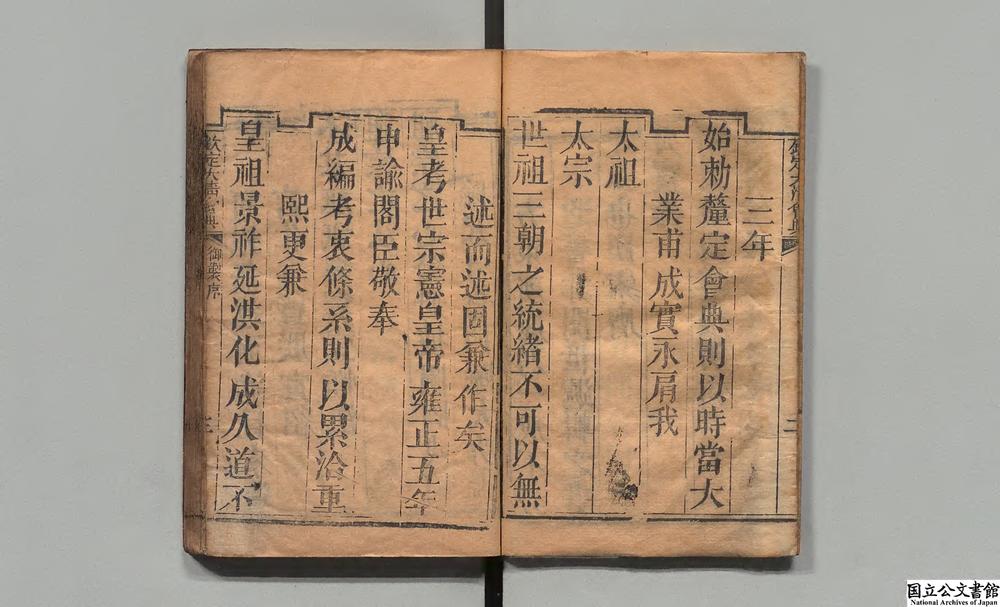 欽定大清會典
二
三年
始勅釐定會典則以時當大
業甫成實永肩我
太祖
太宗
世祖三朝之統緒不可以無
述而述因兼作矣
皇考世宗憲皇帝雍正五年
申諭閣臣敬奉
成編考衷條系則以累洽重
熙更兼
皇祖景祚延洪化成久道不
欽定大清會典
御製序
三
国立公文書館
National Archives of Japan